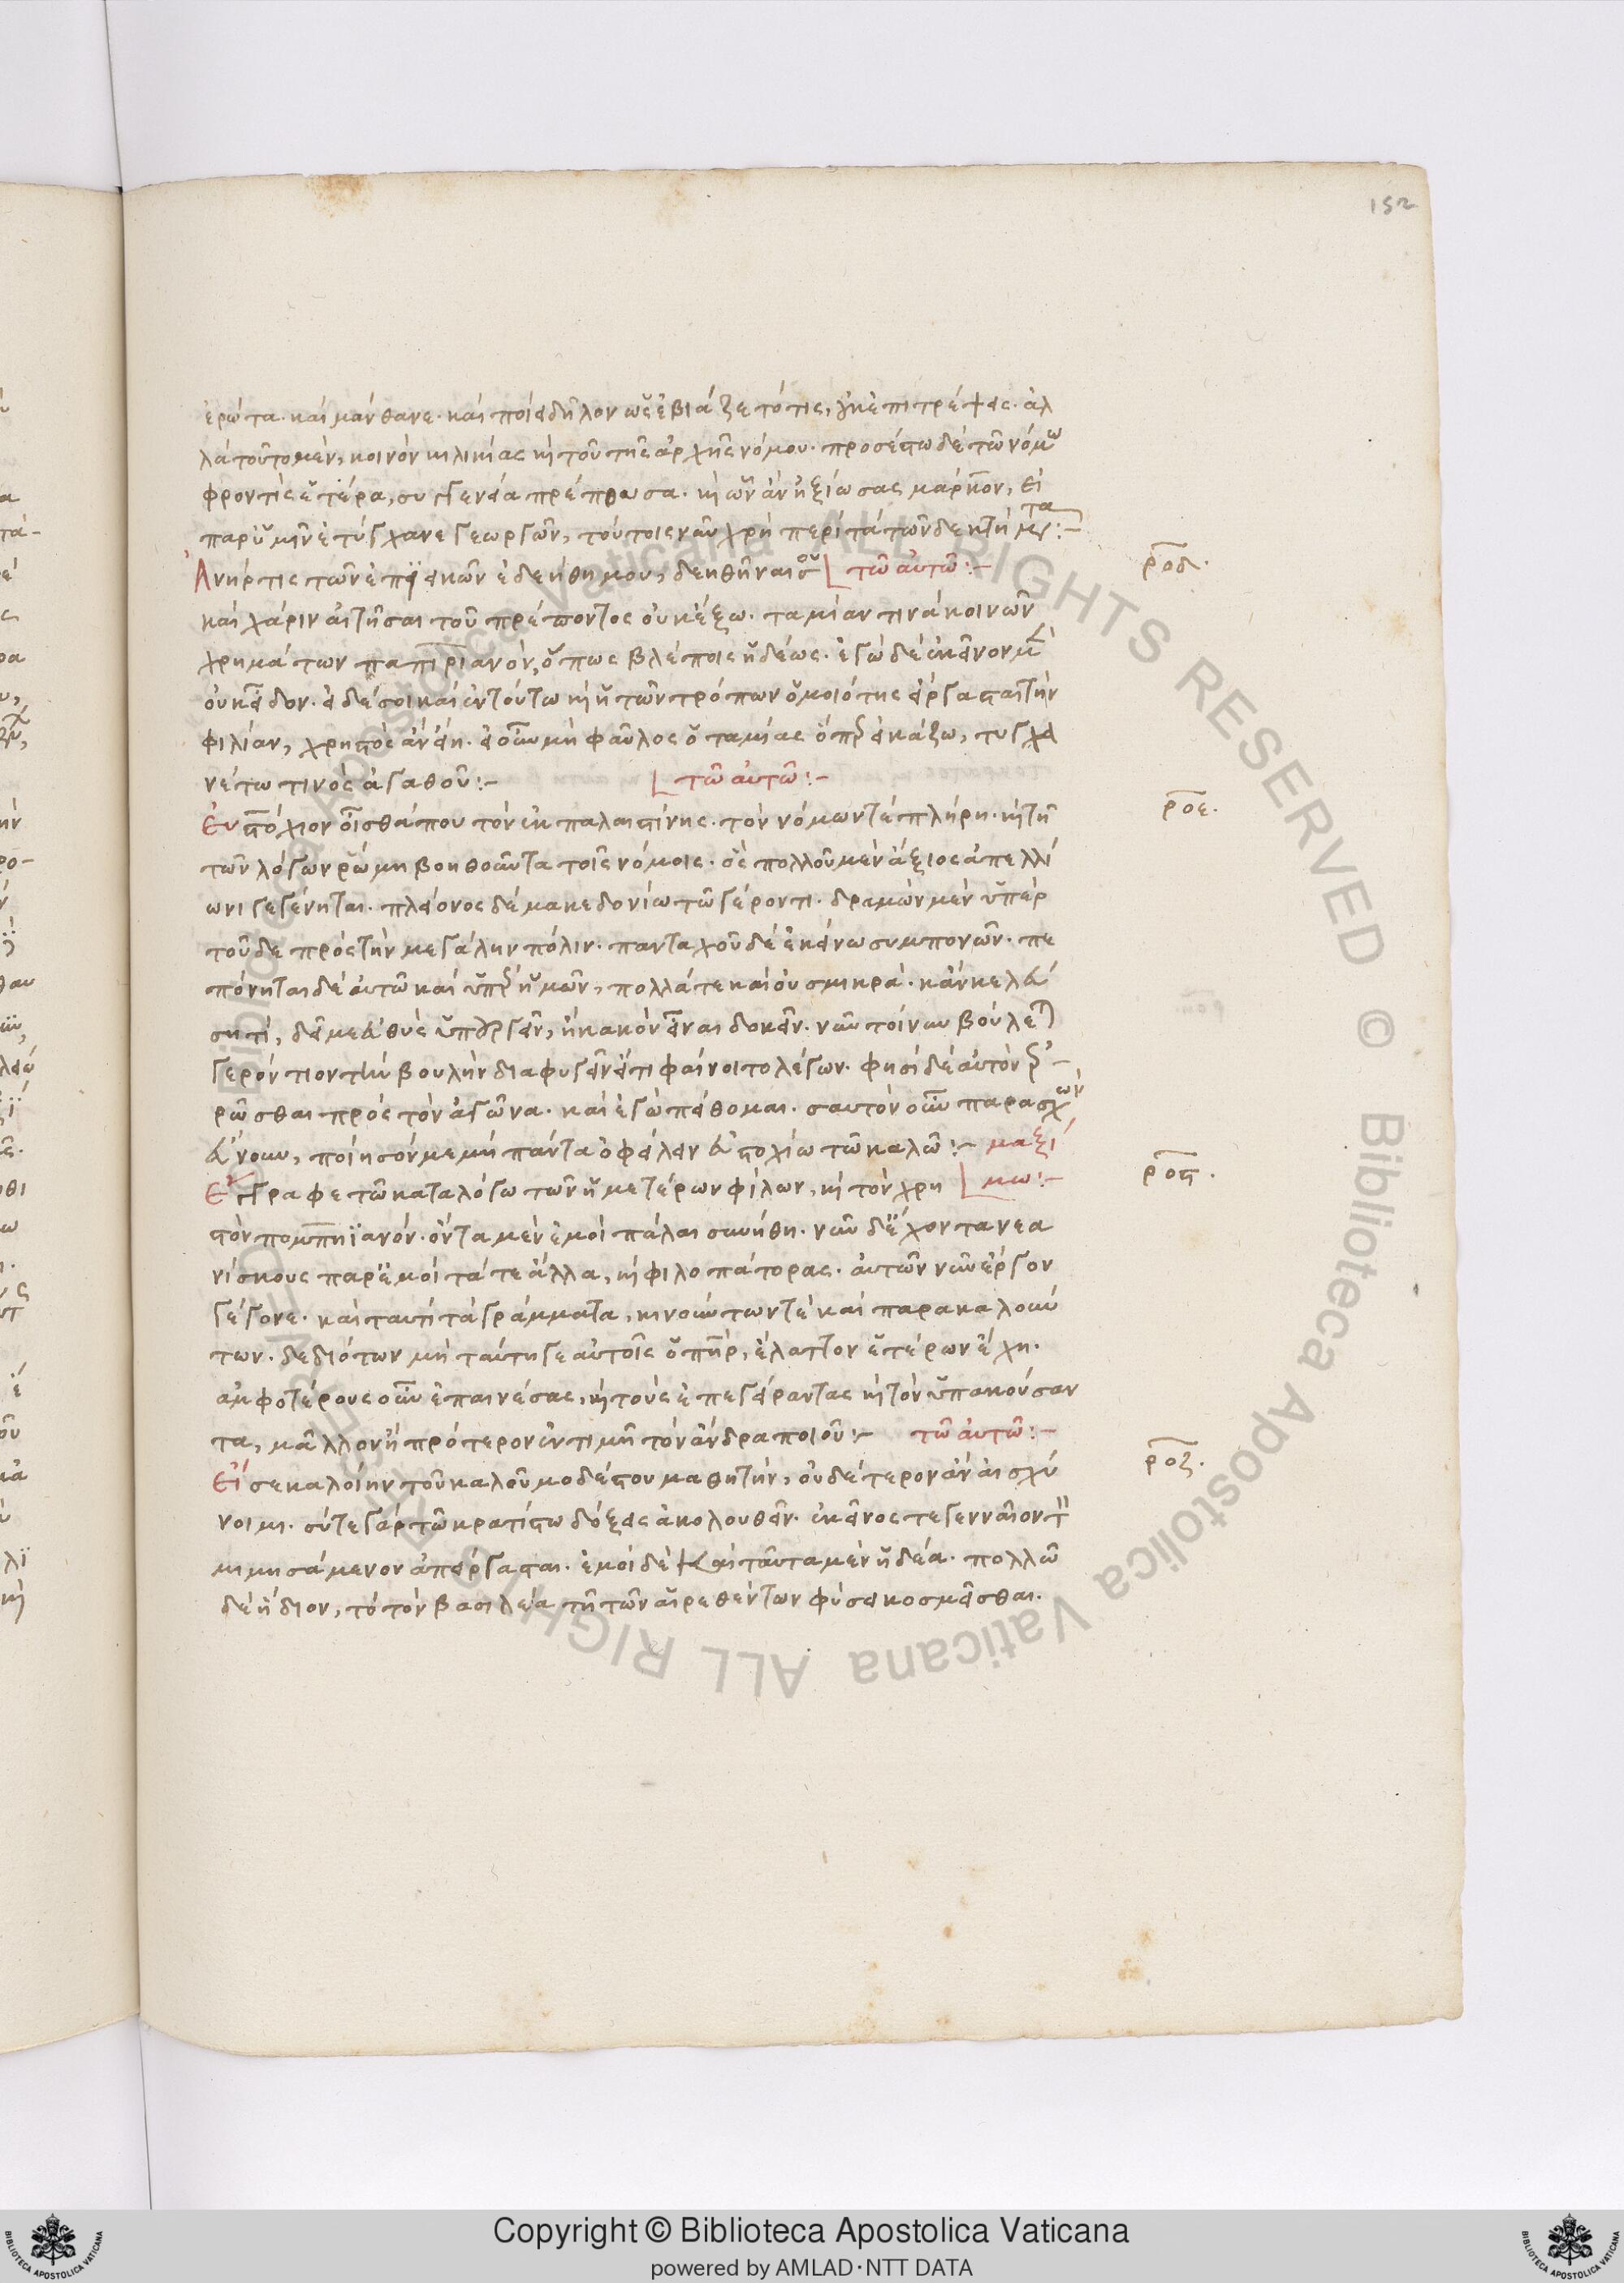 152
ἐρώτα. καὶ μάνθανε. καὶ ποίει δῆλον ὡς ἐβιάζετό τις, οὐκ ἐπιτρέψεις. ἀλ
λὰ τοῦτο μὲν, κοινὸν κιλικίας καὶ τοῦ τῆς ἀρχῆς νόμου. προσέστω δὲ τῶ νόμω
φροντὶς ἑτέρα, συγγενεία πρέπουσα. καὶ ὧν ἂν ἠξίωσας μάρκον, εἰ
παρ' ὑμῖν ἐτύγχανε γεωργῶν, τούτοις νῦν χρὴ περιστάτων δε κτήματα:-
Ἀνήρ τις τῶν ἐπιεικῶν ἐδεήθη μου, δεηθῆναι σοῦ
τῶ αὐτῶ:-
ροδ.
καὶ χάριν αἰτῆσαι τοῦ πρέποντος οὐκ ἔξω. ταμίαν τινὰ κοινῶν
χρημάτων παπιριανὸν, ὅπως βλέποις ἡδέως. ἐγὼ δὲ ἐκεῖνον μὲν
οὐκ εἶδον. εἰ δέ σοι καὶ ἐν τούτω καὶ ἡ τῶν τρόπων ὁμοιότης εἴργασται τὴν
φιλίαν, χρηστὸς ἂν εἴη. εἰ οὖν μὴ φαῦλος ὁ ταμίας ὅπερ εἰκάζω, τυγχα
νέτω τινὸς ἀγαθοῦ:-
τῶ αὐτῶ:-
ροε.
Εὐστόχιον οἶσθά που τὸν ἐκ παλαιστίνης. τὸν νόμων τὲ πλήρη. καὶ τῆ
τῶν λόγων ῥώμη βοηθοῦντα τοῖς νόμοις. ὃς πολλοῦ μὲν ἄξιος ἀπελλί
ωνι γεγένηται. πλείονος δὲ μακεδονίω τῶ γέροντι. δραμὼν μὲν ὑπὲρ
τοῦδε πρὸς τὴν μεγάλην πόλιν. πανταχοῦ δὲ ἐκείνω συμπονῶν. πε
πόνηται δὲ αὐτῶ καὶ ὑπὲρ ἡμῶν, πολλά τε καὶ οὐ σμικρά. κἂν κελεύ
ση τὶ, δεῖ με εὐθὺς ὑπουργεῖν, ἢ κακὸν εἶναι δοκεῖν. νῦν τοίνυν βούλεται
γερόντιον τὴν βουλὴν διαφυγεῖν εἴ τι φαίνοιτο λέγων. φησὶ δὲ αὐτὸν ἐρ-
ρῶσθαι πρὸς τὸν ἀγῶνα. καὶ ἐγὼ πείθομαι. σαυτὸν οὖν παρασχὼν
εὔνουν, ποίησόν με μὴ πάντα ὀφείλειν εὐστοχίω τῶ καλῶ:-
μαξί
μω:-
ροϛ.
Ἔγγραφε τῶ καταλόγω τῶν ἡμετέρων φίλων, καὶ τὸν χρη
στὸν πομπηϊανόν. ὄντα μὲν ἐμοὶ πάλαι συνήθη. νῦν δ' ἔχοντα νεα
νίσκους παρ' ἐμοὶ τά τε ἄλλα, καὶ φιλοπάτορας. αὐτῶν νῦν ἔργον
γέγονε. καὶ ταυτὶ τὰ γράμματα, κινούντων τὲ καὶ παρακαλούν
των. δεδιότων μὴ ταύτη γε αὐτοῖς ὁ πατὴρ, ἔλαττον ἑτέρων ἔχη.
ἀμφοτέρους οὖν ἐπαινέσας, καὶ τοὺς ἐπεγείραντας καὶ τὸν ὑπακούσαν
τα, μᾶλλον ἢ πρότερον ἐν τιμῆ τὸν ἄνδρα ποιοῦ:-
τῶ αὐτῶ:-
ροζ.
Εἴ σε καλοίην τοῦ καλοῦ μοδέστου μαθητὴν, οὐδέτερον ἂν αἰσχύ
νοιμι. σύ τε γὰρ τῶ κρατίστω δόξεις ἀκολουθεῖν. ἐκεῖνος τε γενναῖον τὸν
μιμησάμενον ἀπείργασται. ἐμοὶ δὲ καὶ ταῦτα μὲν ἡδέα. πολλῶ
δὲ ἥδιον, τὸ τὸν βασιλέα τῆ τῶν αἱρεθέντων φύσει κοσμεῖσθαι.
Copyright © Biblioteca Apostolica Vaticana
powered by AMLAD·NTT DATA